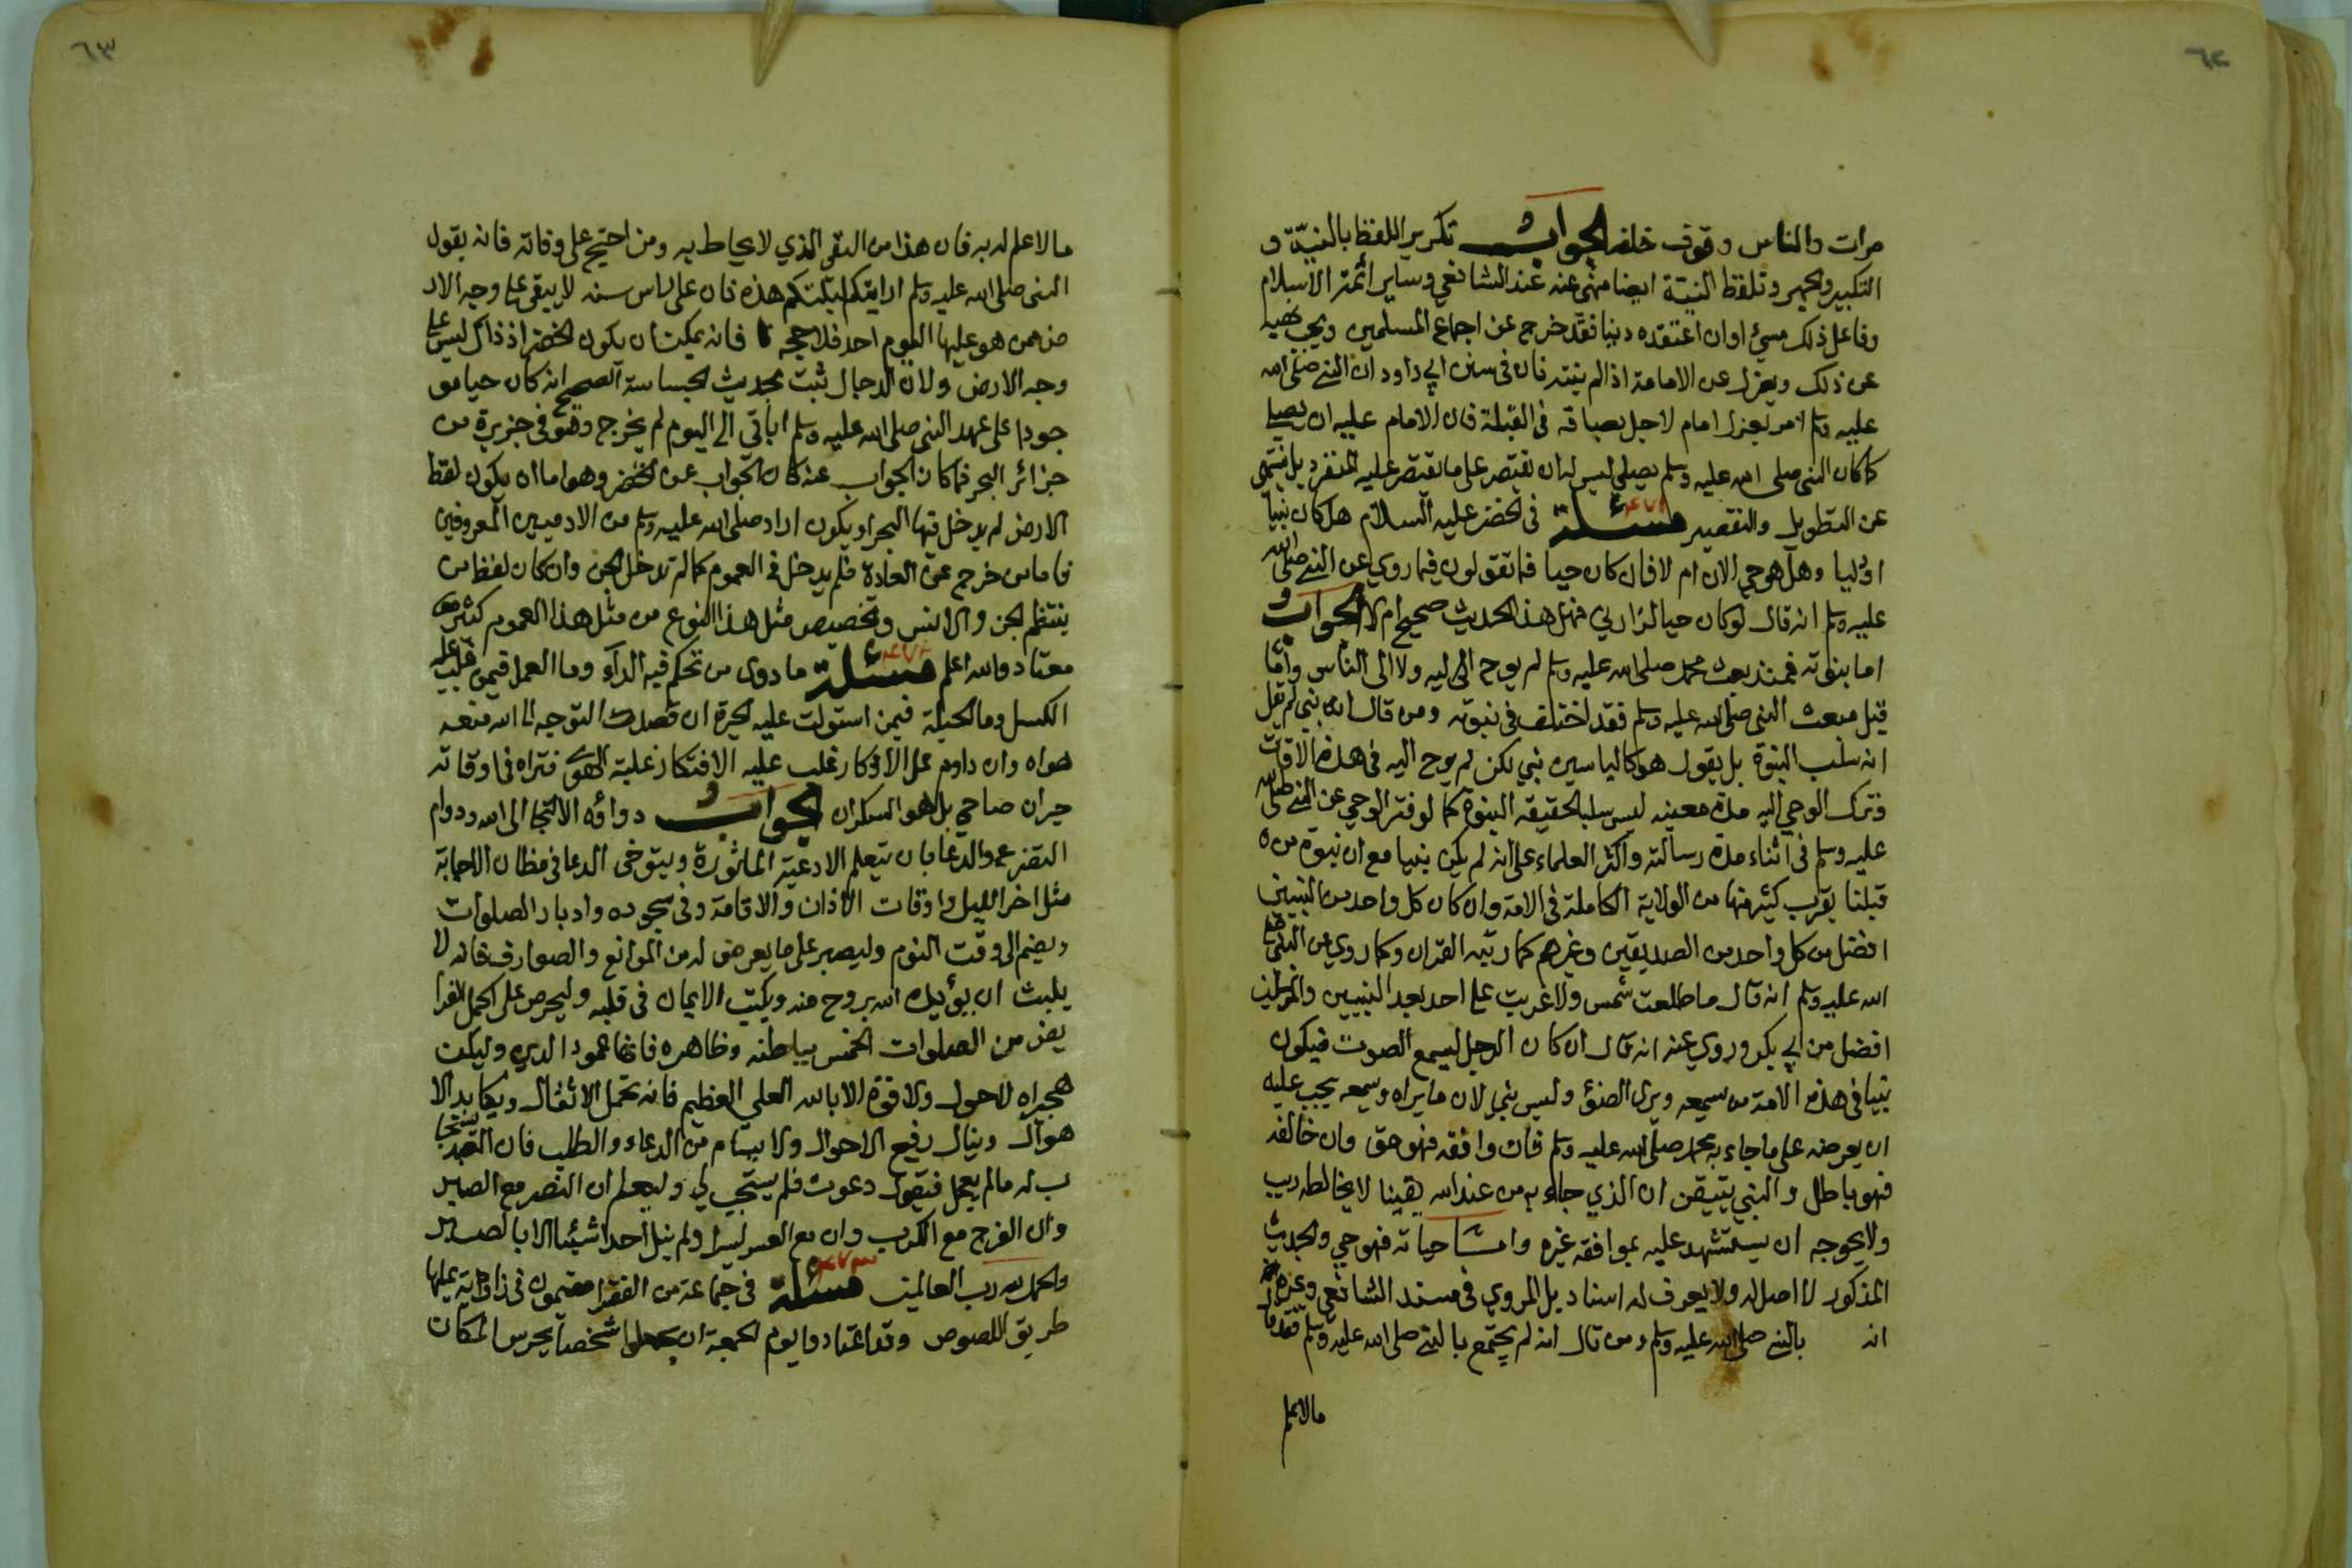 ٦٢
مرات والناس وقوف خلفه الجواب تكرير اللفظ بالنية و
التكبير والجهر وتلفظ النية ايضا منهى عنه عند الشافعي وساير ائمة الاسلام
وفاعل ذلك مسئ اوان اعتقده دينا فقد خرج عن اجماع المسلمين ويجب نهيه
عن ذلك ويعزل عن الامامة اذا لم ينته فان فى سنن ابي داود ان النبي صلى الله
عليه وسلم امر بعزل امام لاجل بصاقه في القبلة فان الامام عليه ان يصلي
كما كان النبى صلى الله عليه وسلم يصلي ليس له ان يقتصر على ما يقتصر عليه المنفرد بل ينتهى
عن التطويل والتقصير مسئلة ٤٧١ فى الخضر عليه السلام هل كان نبيا
او وليا وهل هو حي الان ام لا فان كان حيا فما تقولون فيما روي عن النبي صلى الله
عليه وسلم انه قال لو كان حيا لزارني فهل هذا الحديث صحيح ام لا الجواب
اما بنوته فمنذ بعث محمد صلى الله عليه وسلم لم يوح اليه ولا الى الناس واما
قبل مبعث النبى صلى الله عليه وسلم فقد اختلف فى نبوته ومن قال انه نبي لم يقل
انه سلب النبوة بل يقول هو كالياسين نبي لكن لم يوح اليه فى هذه الاوقات
وترك الوحي اليه مدة معينه ليس سلبا لحقيقه النبوة كما لو فتر الوحي عن النبي صلى الله
عليه وسلم فى اثناء مدة رسالته واكثر العلماء على انه لم يكن نبيا مع ان نبوة من
قبلنا يقرب كثير منها من الولاية الكاملة فى الامة وان كان كل واحد من النبيين
افضل من كل واحد من الصديقين وغيرهم كما رتبه القران وكما روي عن النبى صلى
الله عليه وسلم انه قال ما طلعت شمس ولا غربت على احد بعد النبيين والمرسلين
افضل من ابي بكر وروي عنه انه قال ان كان الرجل ليسمع الصوت فيكون
نبيا فى هذه الامة من يسمعه ويرى الضوئ وليس بنبي لان ما يراه ويسمعه يجب عليه
ان يعرضه على ما جاء به محمد صلى الله عليه وسلم فان وافقه فهو حق وان خالفه
فهو باطل والنبي يتيقن ان الذي جاء به من عند الله يقينا لا يخالطه ريب
ولا يحوجه ان يستشهد عليه بموافقه غيره واما حياته فهو حي والحديث
المذكور لا اصل له ولا يعرف له اسناد بل المروي فى مسند الشافعي وغيره
انه بالنبي صلى الله عليه وسلم ومن قال انه لم يجتمع بالنبي صلى الله عليه وسلم فقد قال
مالاعلم
٦٣
مالا علم له به فان هذا من النفي الذي لا يحاط به ومن احتج على وفاته فانه يقول
النبى صلى الله عليه وسلم ارايتكم ليلتكم هذه فان على راس سنه لا يبقى على وجه الار
ض ممن هو عليها اليوم احد فلا حجه فانه يمكن ان يكون الخضر اذ ذاك ليس على
وجه الارض ولان الدجال ثبت بحديث الجساسة الصحيح انه كان حيا مو
جودا على عهد النبى صلى الله عليه وسلم اباقي الى اليوم لم يخرج وهو فى جزيرة من
جزائر البحر فما كان الجواب عنه كان الجواب عن الخضر وهو اما ان يكون لفظ
الارض لم يدخل فيها البحر او يكون اراد صلى الله عليه وسلم من الادميين المعروفين
فاما من خرج عن العادة فلم يدخل فى العموم كما لم تدخل الجن وان كان لفظا من
ينتظم الجن والانس وتخصيص مثل هذا النوع من مثل هذا العموم كثير
معتاد والله اعلم مسئلة ٤٧٢ ما دوى من تحكم فيه الداء وما العمل فيمن غلب عليه
الكسل وما الحيلة فيمن استولت عليه الحيرة ان قصدت التوجه الى الله منعه
هواه وان داوم على الاذكار غلب عليه الافتكار غلبة الهوى فتراه فى اوقاته
حيران صاحي بل هو السكران الجواب دوائه الالتجا الى الله ودوام
التضرع والدعا بان يتعلم الادعية الماثورة ويتوخى الدعا فى مظان الاجابة
مثل اخر الليل واوقات الاذان والاقامة وفى سجوده وادبار الصلوات
ويضم الى وقت النوم وليصبر على ما يعرض له من الموانع والصوارف فانه لا
يلبث ان يؤيده الله بروح منه ويكتب الايمان فى قلبه وليحرص على اكمل الفرا
يض من الصلوات الخمس بباطنه وظاهره فانها عمود الدين وليكن
هجيراه لا حول ولا قوة الا بالله العلي العظيم فانه تحمل الاثقال ويكابد الا
هوال وينال رفيع الاحوال ولا يسام من الدعاء والطلب فان العبد يستجا
ب له مالم يعجل فيقول دعوت فلم يستجب لي وليعلم ان النصر مع الصبر
وان الفرج مع الكرب وان مع العسر يسرا ولم ينل احدا شيئا الا بالصبر
والحمد لله رب العالمين مسئلة ٤٧٣ فى جماعة من الفقرا مقيمون فى زاوية عليها
طريق اللصوص وقد اعتادوا يوم الجمعة ان يجعلوا شخصا يحرس المكان